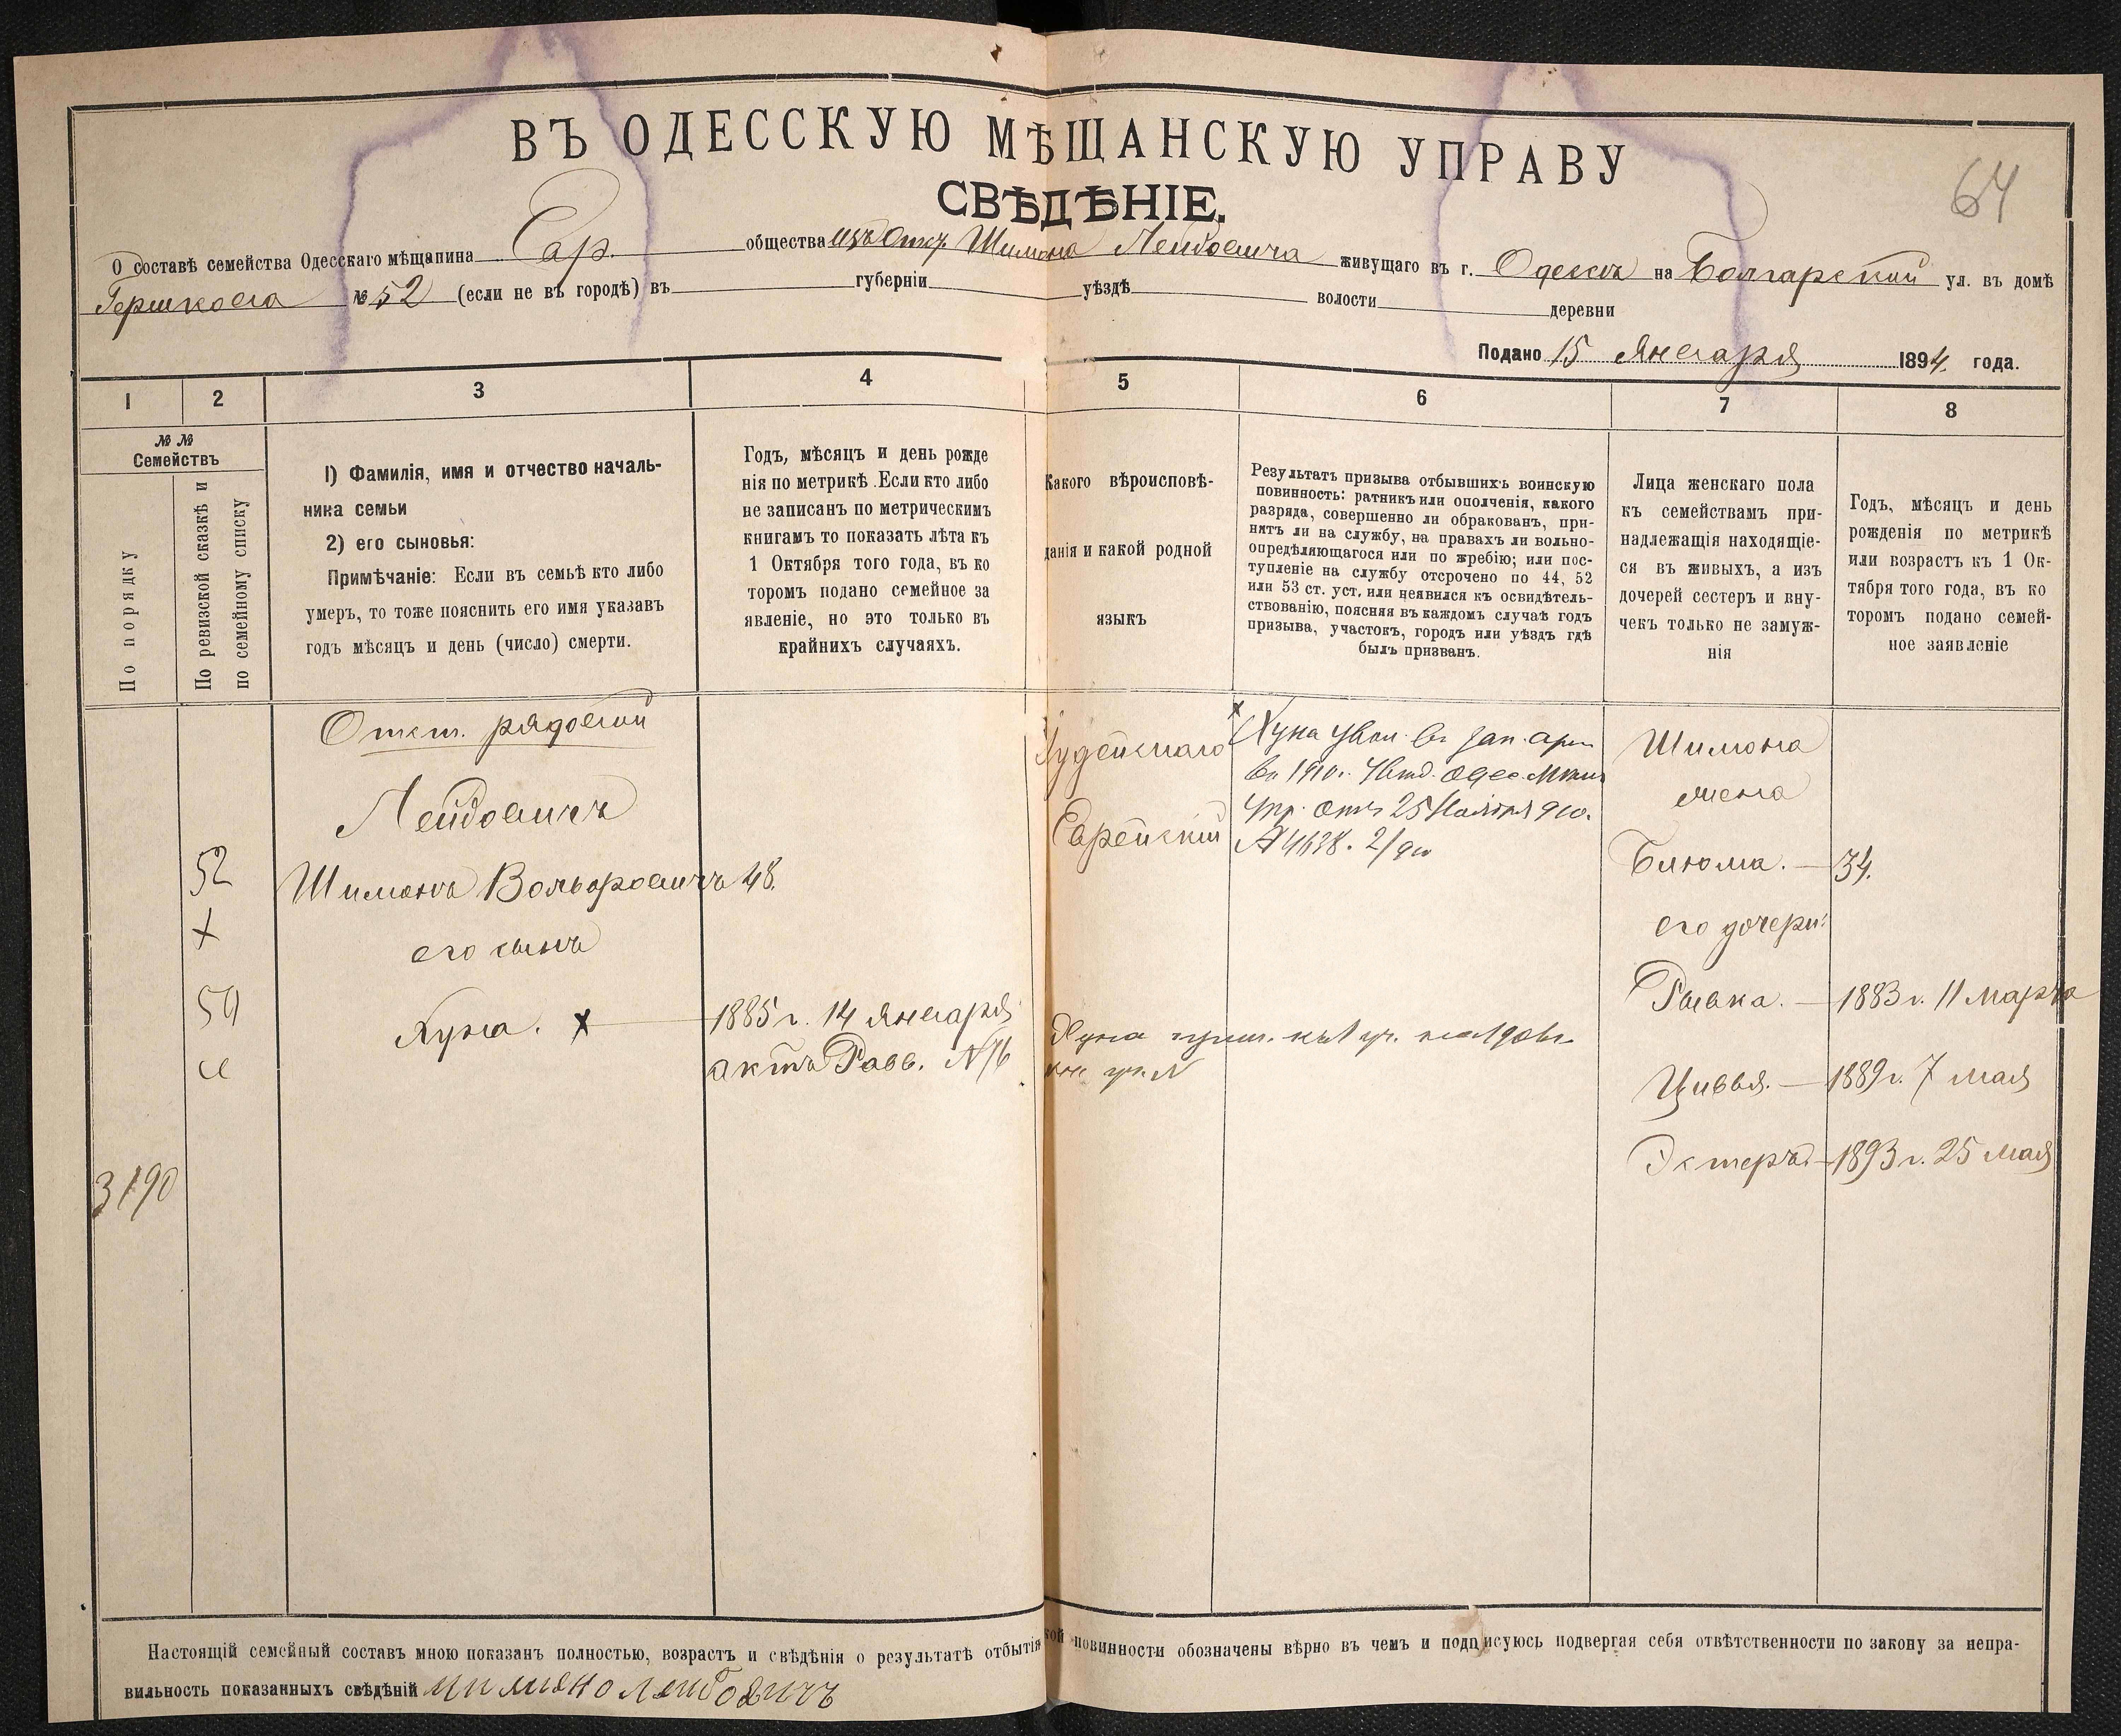 ВЪ ОДЕССКУЮ МѢЩАНСКУЮ УПРАВУ
64
СВѢДѢНІЕ.
О составѣ семейства Одесскаго мѣщанина Евр. общества изъ Отст. Шимона Лейбовича живущаго въ г. Одессѣ на Болгарской ул. въ домѣ
Гершкова № 52 (если не въ городѣ) въ губерніи уѣздѣ волости деревни
Подано 15 Января 1894 года.
1 2 3 4 5 6 7 8
№ №
Семействъ
По порядку
По ревизской сказкѣ и
по семейному списку
1) Фамилія, имя и отчество началь-
ника семьи
2) его сыновья:
Примѣчаніе: Если въ семьѣ кто либо
умеръ, то тоже пояснить его имя указавъ
годъ мѣсяцъ и день (число) смерти.
Годъ, мѣсяцъ и день рожде
нія по метрикѣ. Если кто либо
не записанъ по метрическимъ
книгамъ то показать лѣта къ
1 Октября того года, въ ко
торомъ подано семейное за
явленіе, но это только въ
крайнихъ случаяхъ.
Какого вѣроисповѣ-
данія и какой родной
языкъ
Результатъ призыва отбывшихъ воинскую
повинность: ратникъ или ополченія, какого
разряда, совершенно ли обракованъ, при-
нятъ ли на службу, на правахъ ли вольно-
опредѣляющагося или по жребію; или пос-
тупленіе на службу отсрочено по 44, 52
или 53 ст. уст. или неявился къ освидѣтель-
ствованію, поясняя въ каждомъ случаѣ годъ
призыва, участокъ, городъ или уѣздъ гдѣ
былъ призванъ.
Лица женскаго пола
къ семействамъ при-
надлежащія находящіе-
ся въ живыхъ, а изъ
дочерей сестеръ и вну-
чекъ только не замуж-
нія
Годъ, мѣсяцъ и день
рожденія по метрикѣ
или возрастъ къ 1 Ок-
тября того года, въ ко
торомъ подано семей-
ное заявленіе
Отст. рядовой
Лейбовичъ
52 Шимонъ Вольфовичъ 48.
х
его сынъ
Хуна. х 1885 г. 14 Января
актъ Равв. № 16
3190
Іудейскаго
Еврейскій
х Хуна увол. въ зап. арм
въ 1910 г. Одес. Мѣщ
Упр. отъ 25 Ноября 910.
№ 4638. 2/910
Хуна приз. къ
уч. №
Шимона
жена
Блюма. — 34.
его дочери:
Рывка. — 1883 г. 11 Марта
Цивья. — 1889 г. 7 Мая
Эстеръ. — 1893 г. 25 Мая
Настоящій семейный составъ мною показанъ полностью, возрастъ и свѣдѣнія о результатѣ отбытія кой повинности обозначены вѣрно въ чемъ и подписуюсь подвергая себя отвѣтственности по закону за непра-
вильность показанныхъ свѣдѣній Шимоно Лейбовичъ